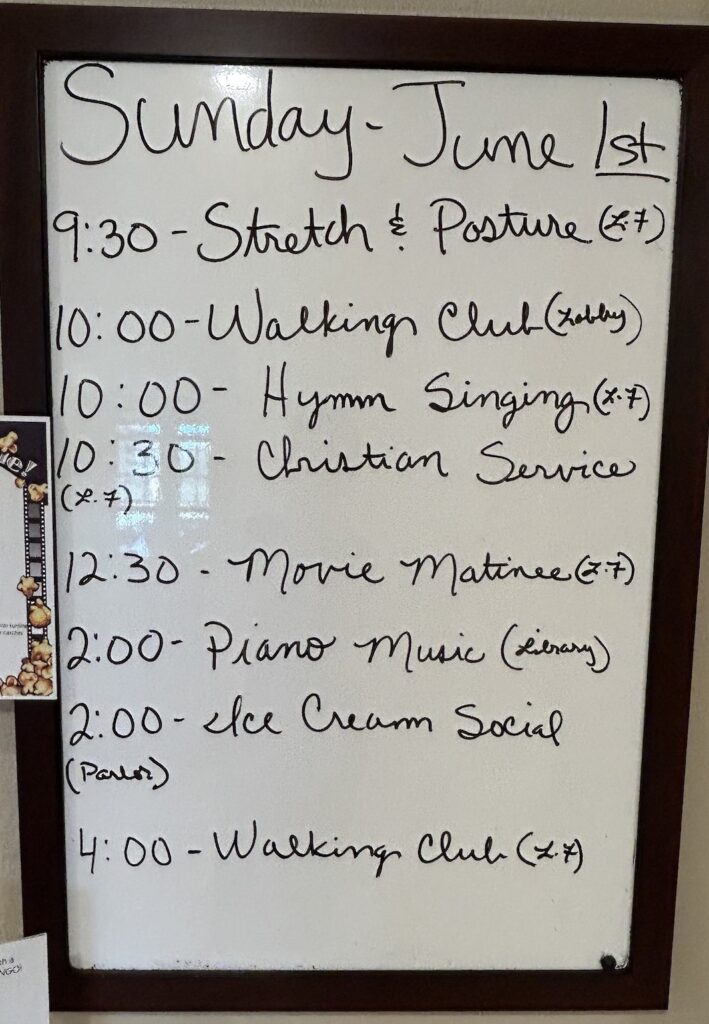 Sunday - June 1st
9:30 - Stretch & Posture (L.F)
10:00 - Walking Club (Lobby)
10:00 - Hymn Singing (L.F)
10:30 - Christian Service
(L.F)
12:30 - Movie Matinee (L.F)
2:00 - Piano Music (Library)
2:00 - Ice Cream Social
(Parlor)
4:00 - Walking Club (L.F)